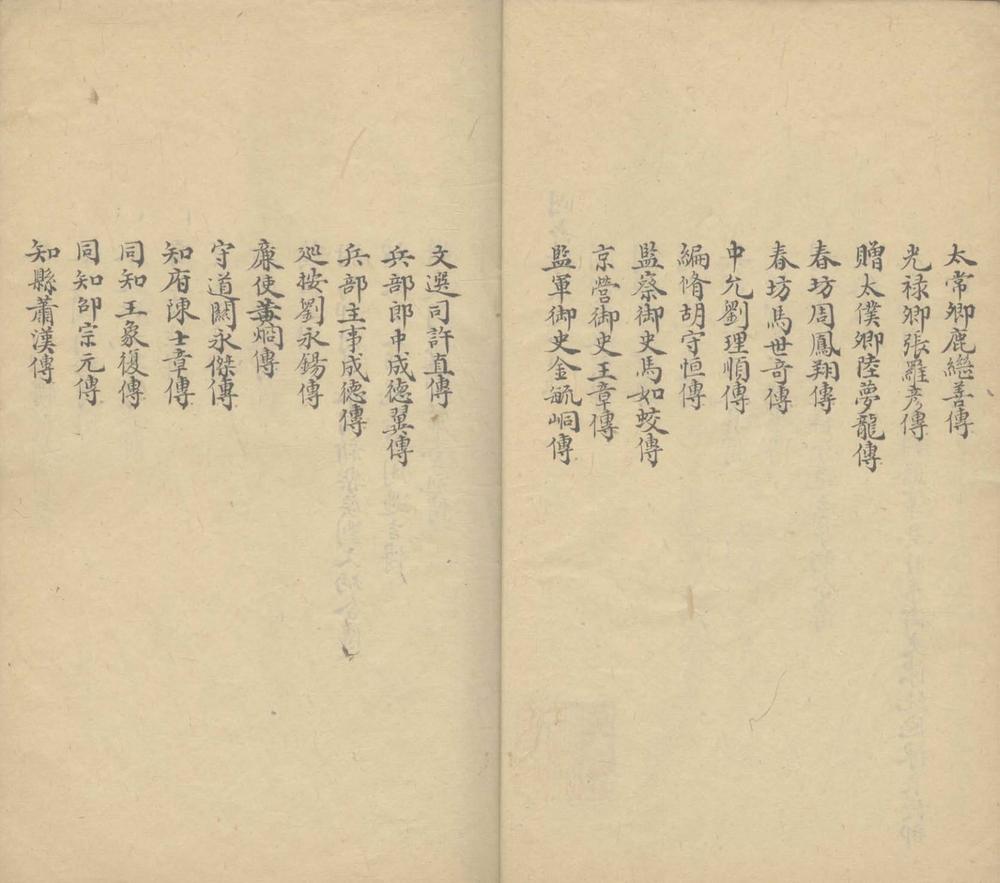 太常卿鹿繼善傳
光禄卿張羅彥傳
贈太僕卿陸夢龍傳
春坊周鳳翔傳
春坊馬世竒傳
中允劉理順傳
編脩胡守恒傳
監察御史馬如蛟傳
京營御史王章傳
監軍御史金毓峒傳
文選司許直傳
兵部郎中成德翼傳
兵部主事成德傳
廵按劉永錫傳
廉使黃烱傳
守道關永傑傳
知府陳士章傳
同知王象復傳
同知邵宗元傳
知縣蕭漢傳